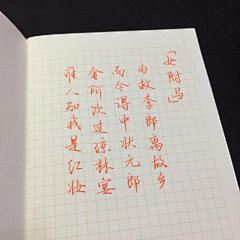 「女附马」
为救李郎离故乡
而今得中状元郎
金阶饮过琼林宴
谁人知我是红妆